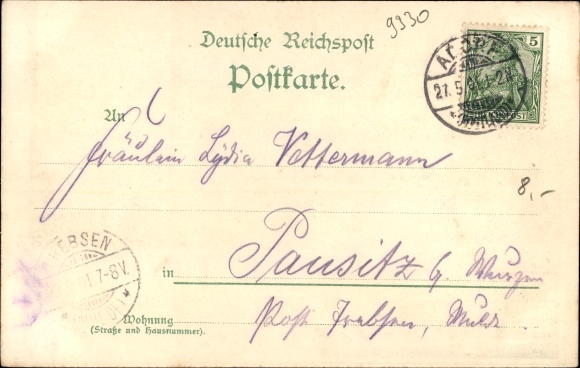 9930
Deutsche Reichspost
Postkarte.
5
27.5.
An
Fräulein Lydia Vettermann
8,-
EBSEN
7-8V.
in Pausitz b. Wurzen
Wohnung
(Straße und Hausnummer).
Post Trebsen, Mulde